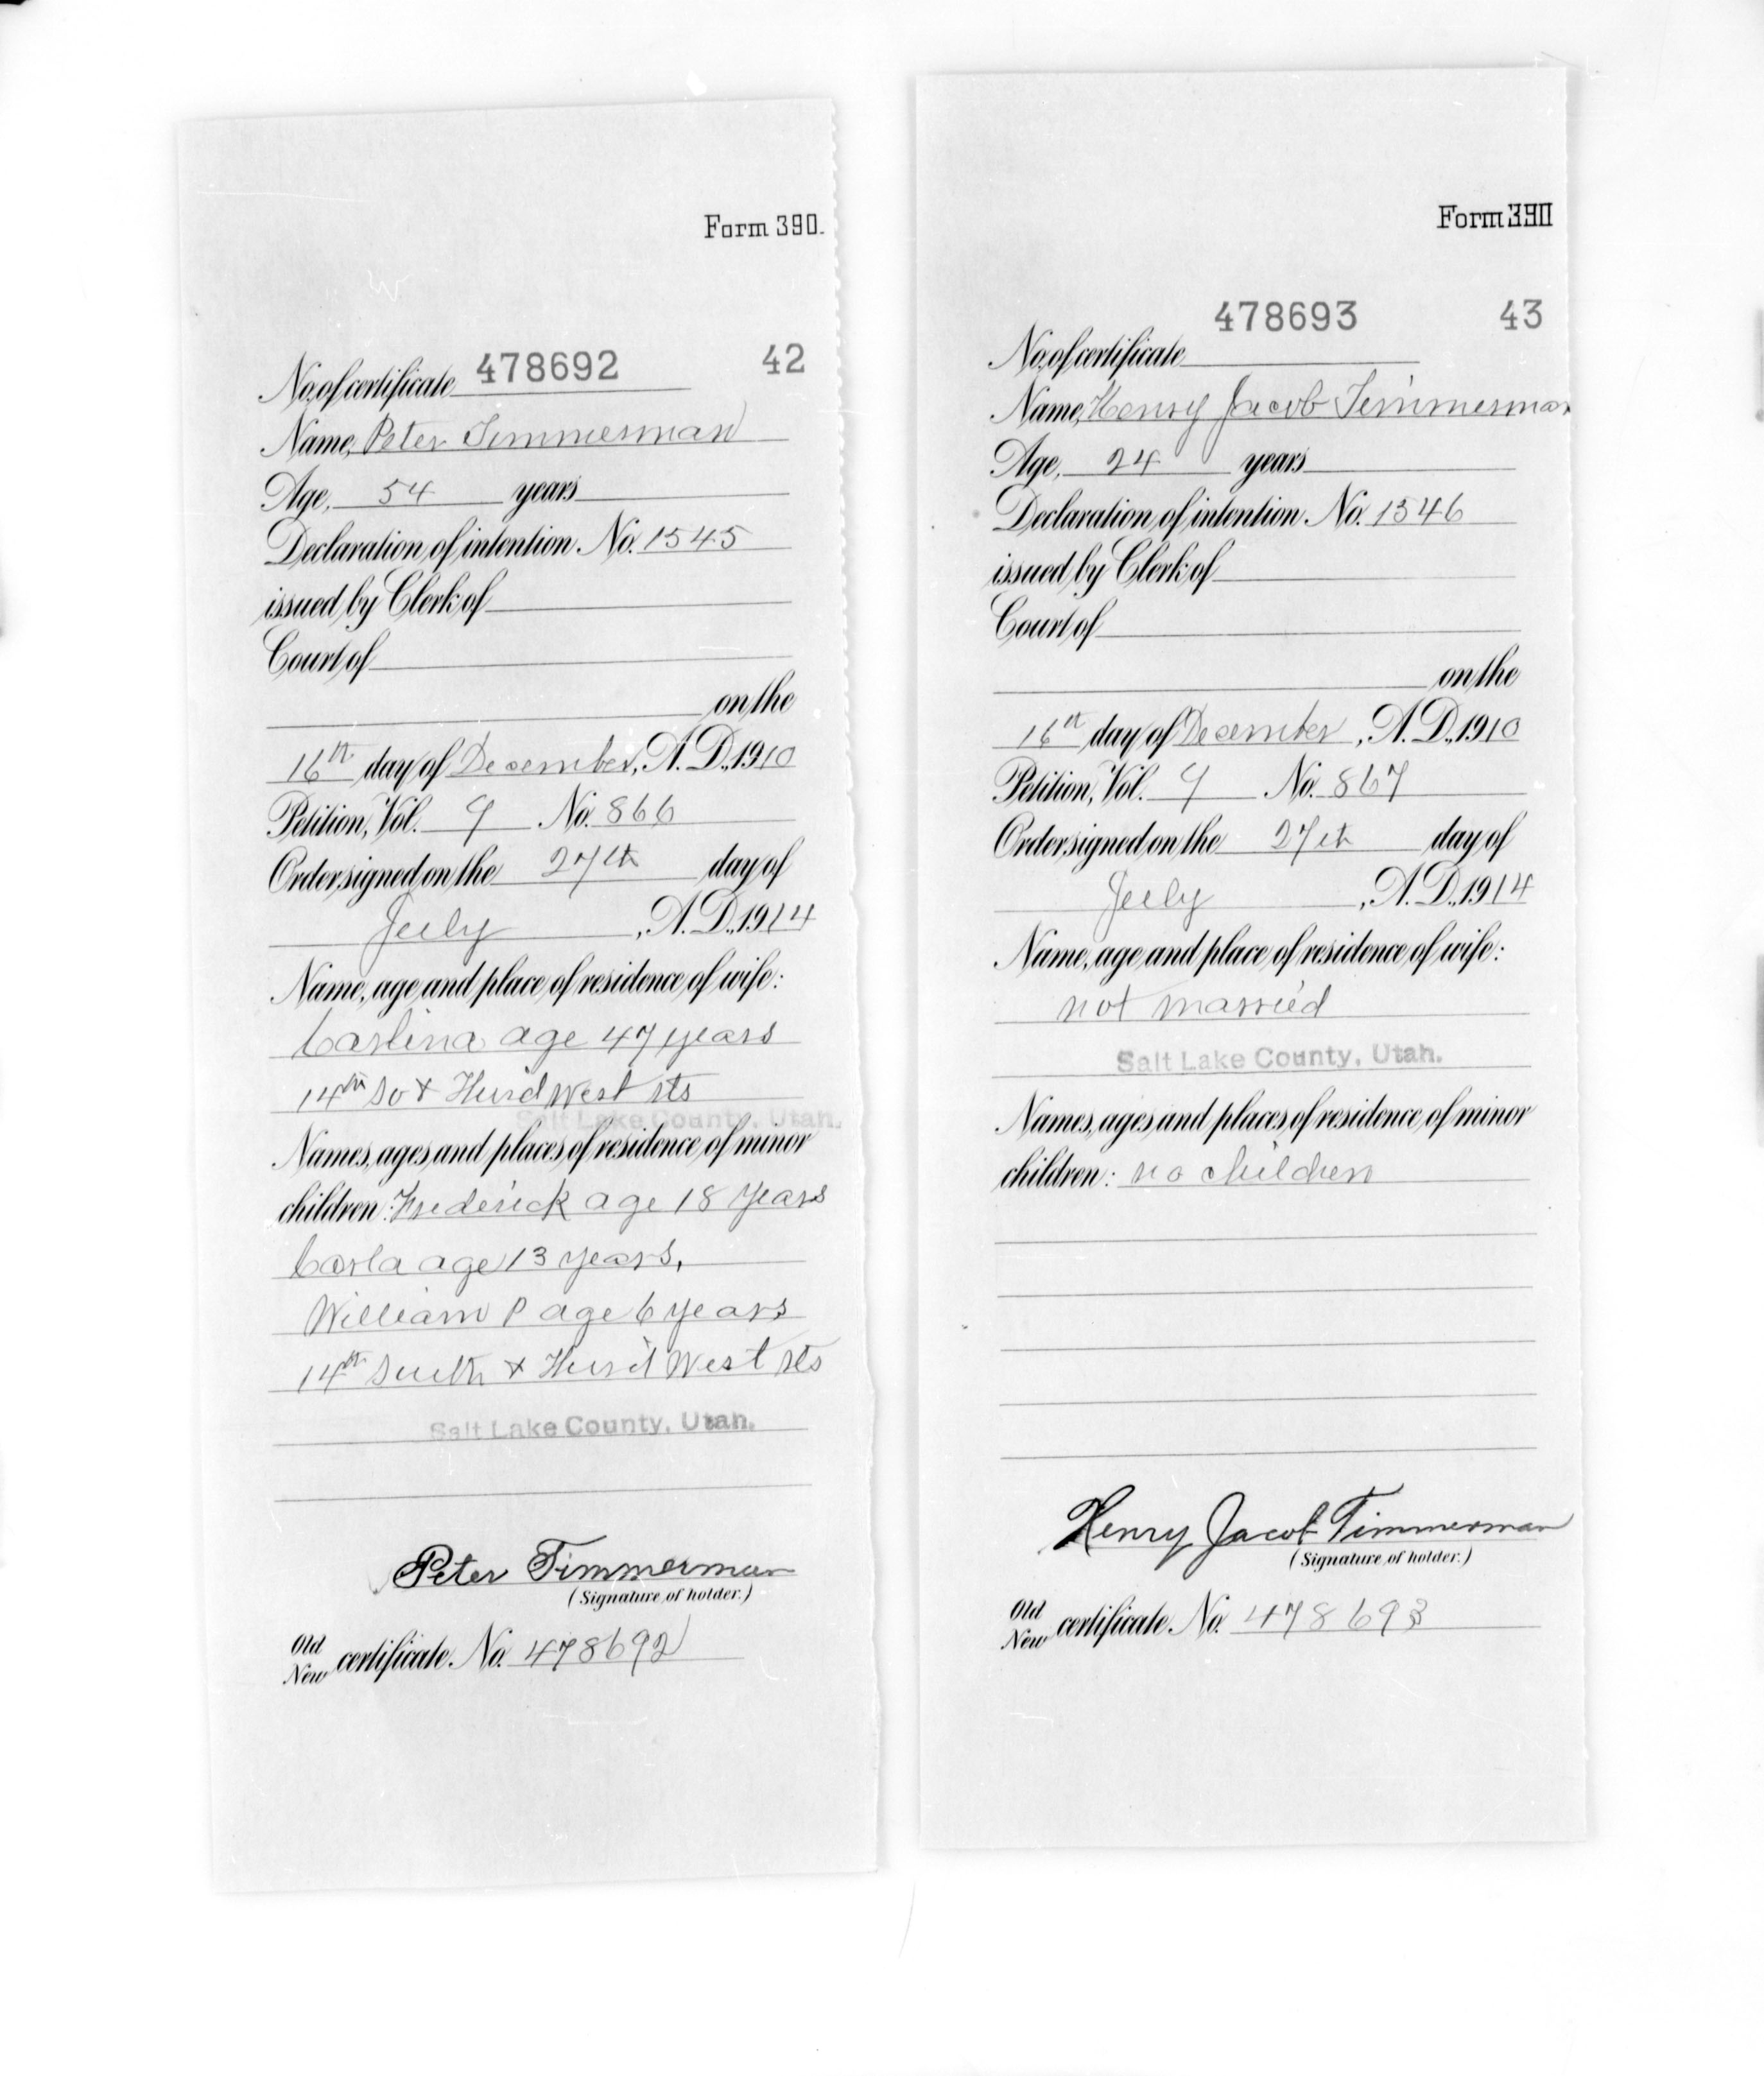 Form 390.
No. of certificate 478692 42
Name, Peter Timmerman
Age, 54 years
Declaration of intention No. 1545
issued by Clerk of
Court of
on the
16th day of December, A. D., 1910
Petition, Vol. 9 No. 866
Order signed on the 27th day of
July, A. D., 1914
Name, age and place of residence of wife:
Carlina age 47 years
14th So & Third West sts
Salt Lake County, Utah.
Names, ages and places of residence of minor
children: Frederick age 18 years
Carla age 13 years,
William P age 6 years
14th South & Third West sts
Salt Lake County, Utah.
Peter Timmerman
(Signature of holder.)
Old
New certificate No. 478692
Form 390
478693 43
No. of certificate
Name, Henry Jacob Timmerman
Age, 24 years
Declaration of intention No. 1546
issued by Clerk of
Court of
on the
16th day of December, A. D., 1910
Petition, Vol. 9 No. 867
Order signed on the 27th day of
July, A. D., 1914
Name, age and place of residence of wife:
not married
Salt Lake County, Utah.
Names, ages and places of residence of minor
children: no children
Henry Jacob Timmerman
(Signature of holder.)
Old
New certificate No. 478693